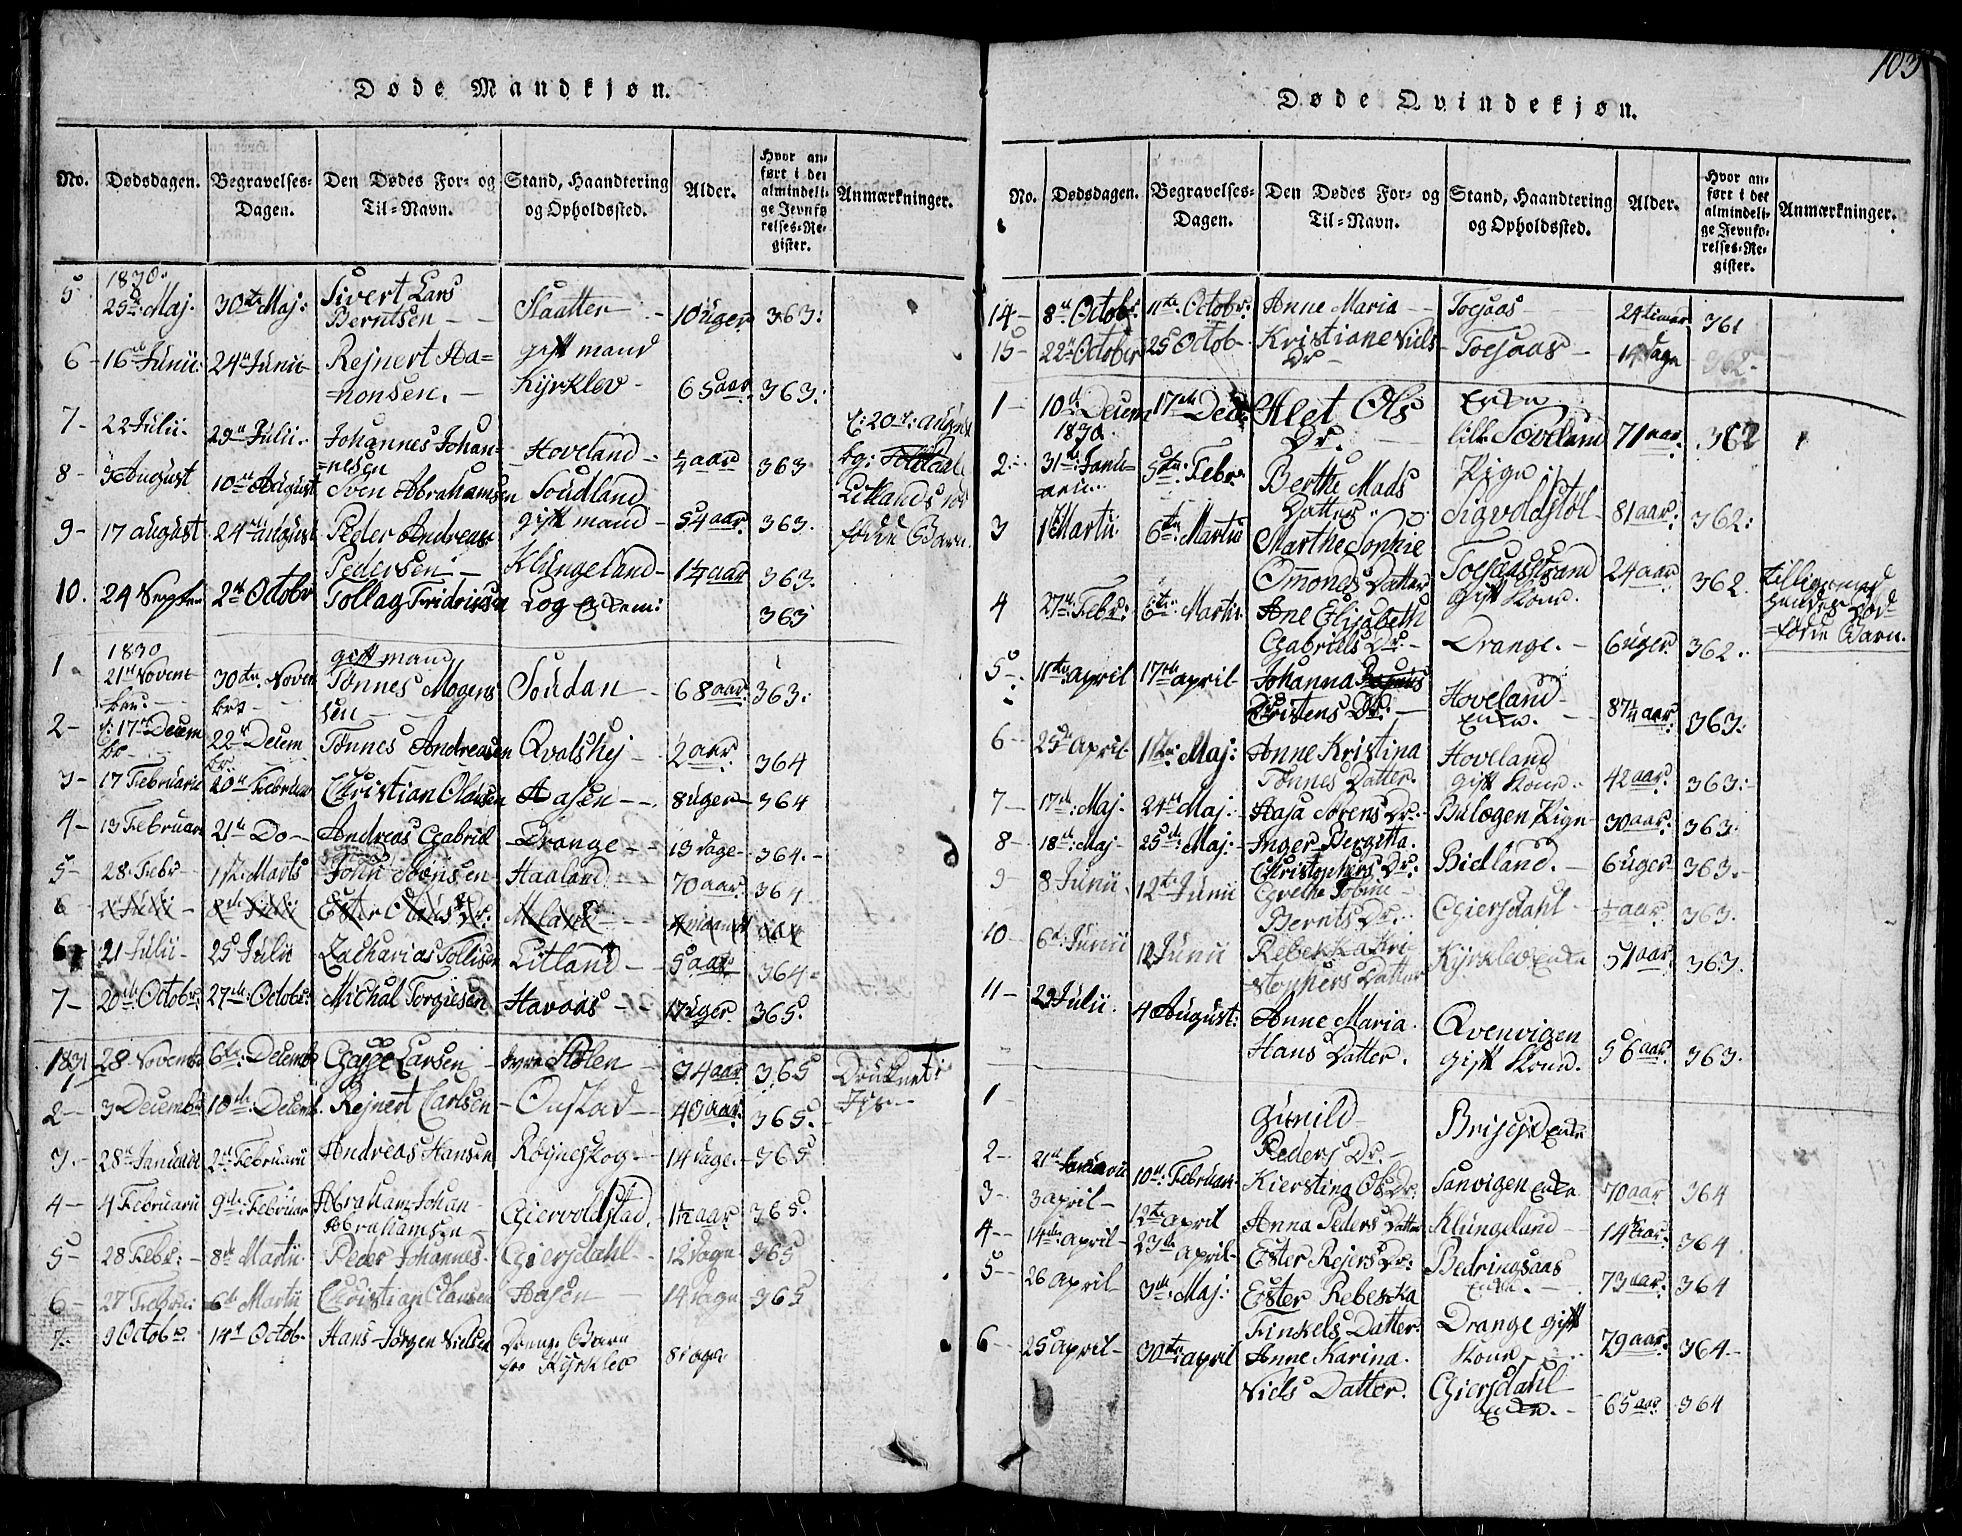 103
Døde Mandkjøn.
No. Dødsdagen. Begravelses-Dagen. Den Dødes For- og Til-Navn. Stand, Haandtering og Opholdssted. Alder. Hvor anført i det almindelige Jevnførelses-Register. Anmærkninger.
1830.
5. 25de Maj. 30te Maj: Sivert Lars Berntsen Slaatter 10 Uger 363:
6 - 16de Junii: 24de Junii Rejnert Aanonsen. gift mand Kyrklev 65 aar. 363:
7 - 22 Julii. 29de Julii. Johannes Johannesen Hoveland ¼ aar 363
8 - 3 August 10de August Sven Abrahamsen Soudland gift mand 54 aar. 363.
9 - 17 august 24de august Peder Andreas Pedersen Klungeland 1¼ aar 363.
10. 24 Septer 2de Octobr Tollag Fridrissen Log 363
födde Barn.
1830
1 21de Novembr: 30te Novenbre Tønnes Mogensen gift mand Soudan 68 aar. 363:
2 - 17de Decembr 22de Decembr Tønnes Andreasen Qvalshej 2 aar. 364
3 - 17 Februarii 20de Februar Christian Olausen Aasen 8 uger 364
4 - 13 Februari 21de Do Andreas Gabriel Drange 13 dage 364.
5 - 28 Febr 1te Marts John Aaensen Haaland 70 aar 364
6 21 Julii 25 Julii Zacharias Tollisen Litland 5 aar 364
7 - 20de Octobr. 27de Octobr: Michal Torgiesen Havaas 17 uger 365.
1831
1 28 Novemb 6te Decemb Larsen Stolen 34 aar 365 Druknet
2 - 3 Decemb 10de Decemb. Rejnert Carlsen Onstad 40 aar. 365.
3. - 28de Januarii 2de Februarii Andreas Hansen Røyneskog 14 dage. 365
4 - 4 Februarii 9de Februar Abraham Johan Abrahamsen Giervoldstad. 1½ aar 365.
5 - 28 Febr: 8de Martii Peder Johannes Giersdahl 12 dage 365
6 - 27 Febru: 6te Martii Christian Clausen Aasen 14 dage 365
7. 9 Octobr. 14de Octob. Hans Jörgen Nielsen Drenge Barn paa Kyrklev 8 dage
Døde Qvindekjøn.
No. Dødsdagen. Begravelses-Dagen. Den Dødes For- og Til-Navn. Stand, Haandtering og Opholdssted. Alder. Hvor anført i det almindelige Jevnførelses-Register. Anmærkninger.
14 - 8de Octobr. 11te Octobr. Anne Maria Toesaas 24 timer 361
15 - 22de October 25 Octob Kristiane Niels Dr Toesaas 14 dage 362.
1 - 10de Decem 17de Dec. Alet Ols Dr. Enke lill. Soveland 71 aar. 362
1830
2 - 31te Januarii 5te Febr. Berthe Mads Datter Pige Sigvoldstøl 81 aar: 362:
3 1 Martii 6te Martii Marthe Sophie Omonds Datter Toesaasstrand gift Kone. 24 aar 362 tilligemed hendes død födde Barn.
4 27de Febr: 6te Martii Ane Elisabeth Gabriels Dr. Drange. 6 uger 362.
5 - 11te april 17de april Johanna Tostens Dr: Hoveland Enke. 87¼ aar. 363:
6 - 25de April 1te Maj: Anne Kristina Tønnes Datter. Hoveland gift Kone. 42 aar. 363:
7 - 17de Maj. 24de Maj. Aasa Sørens Dr: Bulægen Pige 30 aar: 363.
8 - 18de Maj 25de Maj: Inger Bergitta Christophers Dr: Bidland. 6 uger 363.
9 - 8 Junii. 12te Junii Grethe Tobine Bernts Dr. Giersdahl ½ aar. 363.
10 - 6te Junii 12 Junii Rebekka Kristophers Datter Kyrklev Enke 51 aar. 363.
11 - 29 Julii. 4 August: Anne Maria Hans Datter. Qvenvigen gift Kone. 56 aar. 363.
1 Gunild Peders Dr. Brisejd Enke
2 - 21de Januarii 10de Februar Kierstina Ols Dr: Sanvigen Enke 70 aar 364
3 - 3 april 12te april Anna Peders Datter Klungeland 14 aar. 364
4 - 14de april 23de april Ester Rejers Dr: Bedringsaas Enke. 73 aar 364
5 - 26 april 3de Maj: Ester Rebekka Finkels Datter. Drange gift Kone 79 aar. 364
6 - 25 april 30te april Anne Karina Niels Datter. Giersdahl Enke. 65 aar 364